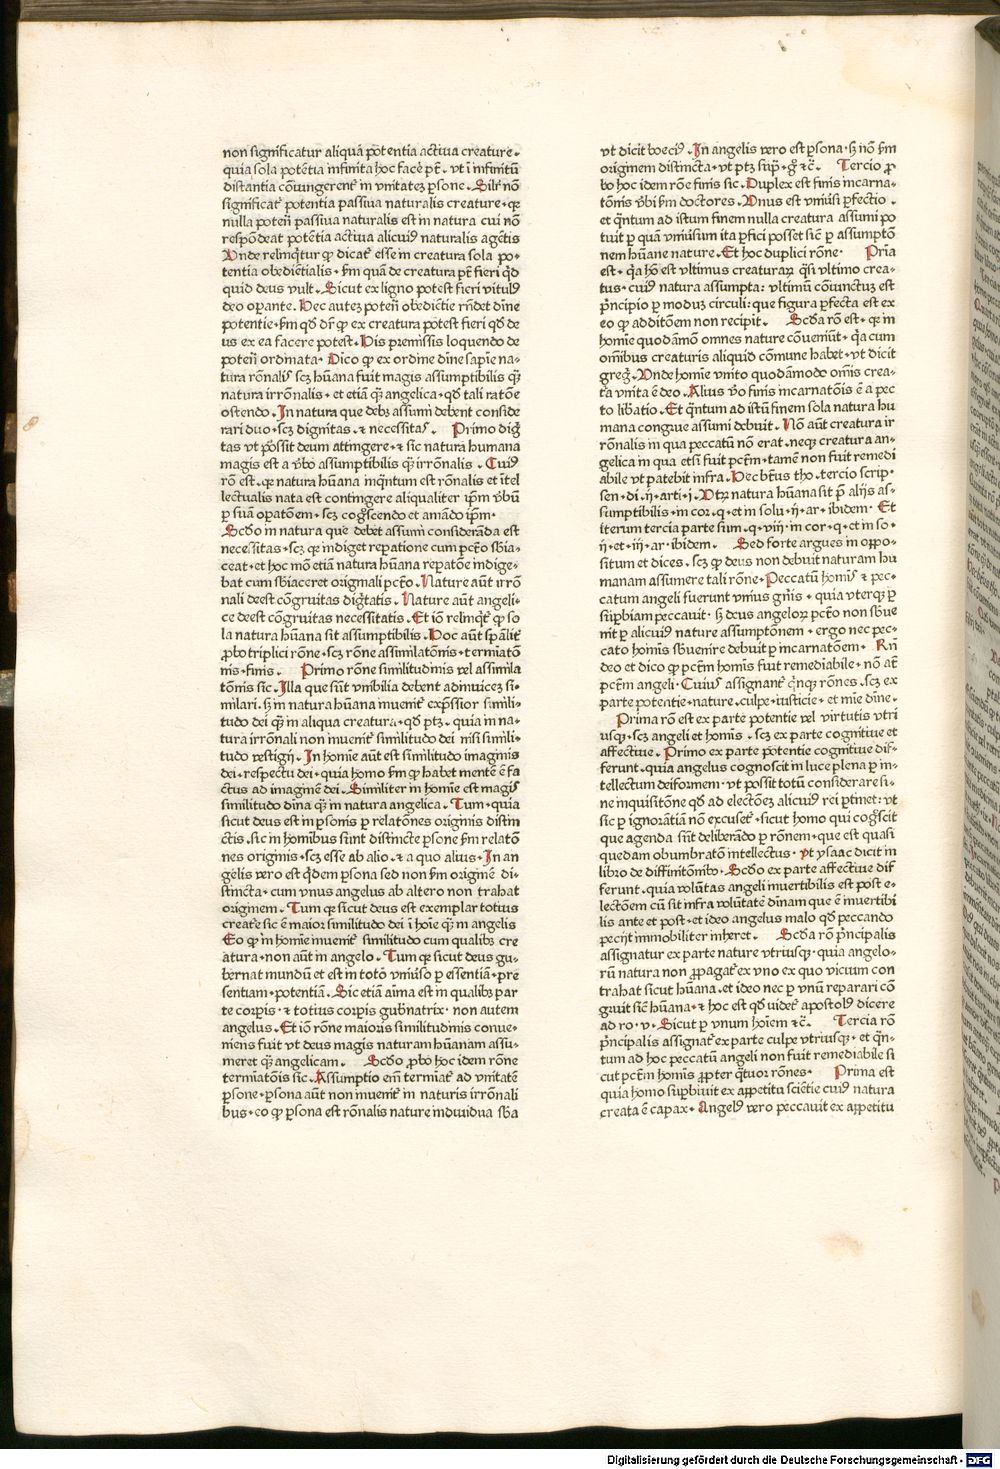 non significatur aliqua potentia actiua creature.
quia sola potẽtia infinita hoc facẽ pt̃. vt ĩ infinitũ
distantia cõuingerent᷑ in vnitatez ꝑsone. Silr̃ nõ
significat᷑ potentia passiua naturalis creature. qꝛ
nulla poten̄ passiua naturalis est in natura cui nõ
respõdeat potẽtia actiua alicuiꝰ naturalis agẽtis
Vnde relinq̃tur ꝙ dicat᷑ esse in creatura sola po-
tentia obediẽtialis. ẜm quã de creatura pt̃ fieri qͥd
quid deus vult. Sicut ex ligno potest fieri vitulꝰ
deo oꝑante. Hec autez poten̄ obedictie rñdet dine
potentie. ẜm qͦd dr̃ ꝙ ex creatura potest fieri qͦd de
us ex ea facere potest. His premissis loquendo de
poten̄ ordinata. Dico ꝙ ex ordine diue sapiẽ na-
tura rõnalis scꝫ hũana fuit magis assumptibilis qͣꝫ
natura irrõnalis. et etiã qͣꝫ angelica. qͦd tali ratõe
ostendo. In natura que debꝫ assumi debent conside
rari duo. scꝫ dignitas. ⁊ necessitas. Primo digͥ
tas vt possit deum attingere. ⁊ sic natura humana
magis est a ṽbo assumptibilis qͣꝫ irrõnalis. Cuiꝰ
rõ est. qꝛ natura hũana inqͣntum est rõnalis et ĩtel
lectualis nata est contingere aliqualiter ip̃m ṽbũ
ꝑ suã oꝑatõem. scꝫ cogͦscendo et amãdo ip̃m.
Scd̃o in natura que debet assumi considerãda est
necessitas. scꝫ qꝛ indiget reꝑatione cum pctõ sbia-
ceat. et hoc mõ etiã natura hũana reꝑatõe indige-
bat cum sbiaceret originali pctõ. Nature aũt irrõ
nali deest cõgruitas digͥtatis. Nature aũt angeli-
ce deest cõgruitas necessitatis. Et iõ relinqͥt᷑ ꝙ so
la natura hũana sit assumptibilis. Hoc aũt sp̃alit᷑
ꝓbo triplici rõne. scꝫ rõne assimilatõnis. termiatõ
nis. finis. Primo rõne similitudinis vel assimila
tõnis sic. Illa que sũt vnibilia debent adinuicez si-
milari. sꝫ in natura hũana inuenit᷑ exp̃ssior simili-
tudo dei qͣꝫ in aliqua creatura. qͦd ptꝫ. quia in na-
tura irrõnali non inuenit᷑ similitudo dei nisi simili-
tudo vestigij. In homĩe aũt est similitudo imaginis
dei. respectu dei. quia homo ẜm ꝙ habet mentẽ ẽ fa
ctus ad imaginẽ dei. Similiter in homie est magis
similitudo diĩna qͣꝫ in natura angelica. Tum. quia
sicut deus est in ꝑsonis ꝑ relatõnes originis distin
ctis. sic in homĩbus sũnt distincte ꝑsone ẜm relatõ
nes originis. scꝫ esse ab alio. ⁊ a quo alius. In an
gelis vero est qͥdem ꝑsona sed non ẜm originẽ di-
stincta. cum vnus angelus ab altero non trahat
originem. Tum qꝛ sicut deus est exemplar totius
creat̃e sic ẽ maioꝛ similitudo dei ĩ hoĩe qͣꝫ in angelis
Eo ꝙ in homie inuenit᷑ similitudo cum qualibꝫ cre
atura. non aũt in angelo. Tum qꝛ sicut deus gu-
bernat mundũ et est in totõ vniũso ꝑ essentiã. pre
sentiam. potentiã. Sic etiã aĩma est in qualibꝫ par
te corꝑis. ⁊ totius corꝑis gubnatrix. non autem
angelus. Et iõ rõne maioris similitudinis conue-
niens fuit vt deus magis naturam hũanam assu-
meret qͣꝫ angelicam. Scd̃o ꝓbo hoc idem rõne
termiatõis sic. Assumptio em̃ termiat᷑ ad vnitatẽ
ꝑsone. ꝑsona aũt non inuenit᷑ in naturis irrõnali
bus. eo ꝙ ꝑsona est rõnalis nature indiuidua sba
vt dicit boeciꝰ. In angelis vero est ꝑsona. sꝫ nõ ẜm
originem distincta. vt ptꝫ suꝑ. gͦ ⁊c̃. Tercio ꝓ
bo hoc idem rõe finis sic. Duplex est finis incarna-
tõnis ṽbi ẜm doctores. Vnus est vniũsi ꝑfectio.
et qͣntum ad istum finem nulla creatura assumi po
tuit ꝑ quã vniũsum ita ꝑfici posset sic̃ ꝑ assumptõ
nem hũane nature. Et hoc duplici rõne. Pria
est. qͣa hõ est vltimus creaturaꝝ qͣsi vltimo crea-
tus. cuiꝰ natura assumpta: vltimũ cõuinctuꝫ est
pͥncipio ꝑ moduꝫ circuli: que figura ꝑfecta est ex
eo ꝙ additõem non recipit. Scd̃a rõ est. qꝛ in
homie quodãmõ omnes nature cõueniũt. qͣa cum
omĩbus creaturis aliquid cõmune habet. vt dicit
gregꝰ. Vnde homie vnito quodãmodo omĩs crea-
ta vnita ẽ deo. Alius ṽo finis incarnatõis ẽ a pec
to libatio. Et qͣntum ad istũ finem sola natura hu
mana congrue assumi debuit. Nõ aũt creatura ir
rõnalis in qua peccatũ nõ erat. neqꝫ creatura an-
gelica in qua etsi fuit pctm̃. tamẽ non fuit remedi
abile vt patebit infra. Hec bt̃us tho. tercio scrip.
sen. di. ij. arti. j. Vtꝝ natura hũana sit p̃ alijs as-
sumptibilis. in cor. q. et in solu. ij. ar. ibidem. Et
iterum tercia parte sum. q. viij. in cor. q. et in so.
ij. et. iij. ar. ibidem. Sed forte argues in oppo-
situm et dices. scꝫ ꝙ deus non debuit naturam hu
manam assumere tali rõne. Peccatũ homis ⁊ pec-
catum angeli fuerunt vnius gñis. quia vterqꝫ ꝑ
suꝑbiam peccauit. sꝫ deus angeloꝝ pctõ non sbue
nit ꝑ alicuiꝰ nature assumptõnem. ergo nec pec-
cato homis sbuenire debuit ꝑ incarnatõem. Rñ
deo et dico ꝙ pctm̃ homis fuit remediabile. nõ at̃
pctm̃ angeli. Cuius assignant᷑ qͥnqꝫ rõnes. scꝫ ex
parte potentie. nature. culpe. iusticie. et mie dine.
Prima rõ est ex parte potentie vel virtutis vtri
usqꝫ. scꝫ angeli et homis. scꝫ ex parte cognitiue et
affectiue. Primo ex parte potentie cognitiue dif-
ferunt. quia angelus cognoscit in luce plena ꝑ in-
tellectum deiformem. vt possit totũ considerare si-
ne inquisitõne qͦd ad electõeꝫ alicuiꝰ rei ꝑtinet: vt
sic ꝑ ignorãtiã nõ excuset᷑. sicut homo qui cogͦscit
que agenda sũt deliberãdo ꝑ rõnem. que est quasi
quedam obumbratõ intellectus. vt ysaac dicit in
libro de diffinitõnibꝰ. Scd̃o ex parte affectiue dif
ferunt. quia volũtas angeli inuertibilis est post e-
lectõem cũ sit infra volũtatẽ diuinam que ẽ inuertibi
lis ante et post. et ideo angelus malo qͦd peccando
pecijt immobiliter inheret. Scd̃a rõ pͥncipalis
assignatur ex parte nature vtriusqꝫ. quia angelo-
rũ natura non ꝓpagat᷑ ex vno ex quo vicium con
trahat sicut hũana. et ideo nec ꝑ vnũ reparari cõ
gruit sic̃ hũana. ⁊ hoc est qͦd videt᷑ apostolꝰ dicere
ad ro. v. Sicut ꝑ vnum hoĩem ⁊c̃. Tercia rõ
pͥncipalis assignat᷑ ex parte culpe vtriusqꝫ. et qͣn-
tum ad hoc peccatũ angeli non fuit remediabile si
cut pctm̃ homis ꝓpter qͣtuor rõnes. Prima est
quia homo suꝑbiuit ex appetitu sciẽtie cuiꝰ natura
creata ẽ capax. Angelꝰ vero peccauit ex appetitu
Digitalisierung gefördert durch die Deutsche Forschungsgemeinschaft - DFG